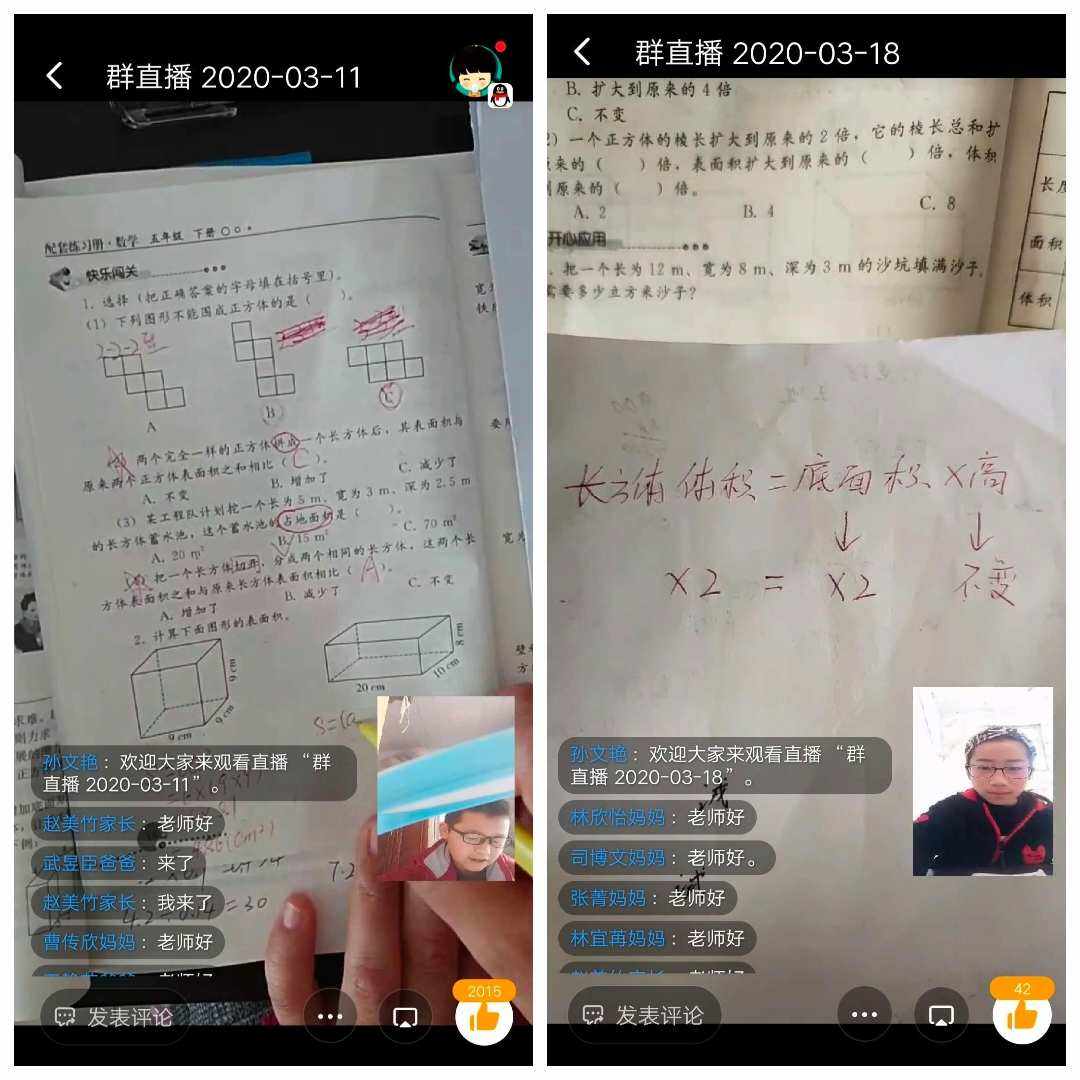 群直播 2020-03-11
配套练习册·数学 五年级 下册
快乐闯关
1. 选择（把正确答案的字母填在括号里）。
（1）下列图形不能围成正方体的是（ ）。
A
B
C
两个完全一样的正方体拼成一个长方体后，其表面积与
原来两个正方体表面积之和相比（C）。
A. 不变
B. 增加了
C. 减少了
（3）某工程队计划挖一个长为 5 m、宽为 3 m、深为 2.5 m
的长方体蓄水池，这个蓄水池的占地面积是（ ）。
A. 20 m²
B. 15 m²
C. 70 m²
把一个长方体切开，分成两个相同的长方体，这两个长
方体表面积之和与原来长方体表面积相比（A）。
A. 增加了
B. 减少了
C. 不变
2. 计算下面图形的表面积。
9 cm
9 cm
9 cm
20 cm
10 cm
8 cm
S=(a
孙文艳：欢迎大家来观看直播“群
直播 2020-03-11”。
赵美竹家长：老师好
武昱臣爸爸：来了
赵美竹家长：我来了
曹传欣妈妈：老师好
= 30
7.2
发表评论
2015
群直播 2020-03-18
B. 扩大到原来的 4 倍
C. 不变
2）一个正方体的棱长扩大到原来的 2 倍，它的棱长总和扩
来的（ ）倍，表面积扩大到原来的（ ）倍，体积
原来的（ ）倍。
A. 2
B. 4
C. 8
开心应用
把一个长为 12 m、宽为 8 m、深为 3 m 的沙坑填满沙子，
需要多少立方米沙子？
长度
面积
体积
长方体体积=底面积×高
↓ ↓
×2 = ×2 不变
孙文艳：欢迎大家来观看直播“群
直播 2020-03-18”。
林欣怡妈妈：老师好
司博文妈妈：老师好。
张菁妈妈：老师好
林宜苒妈妈：老师好
发表评论
42